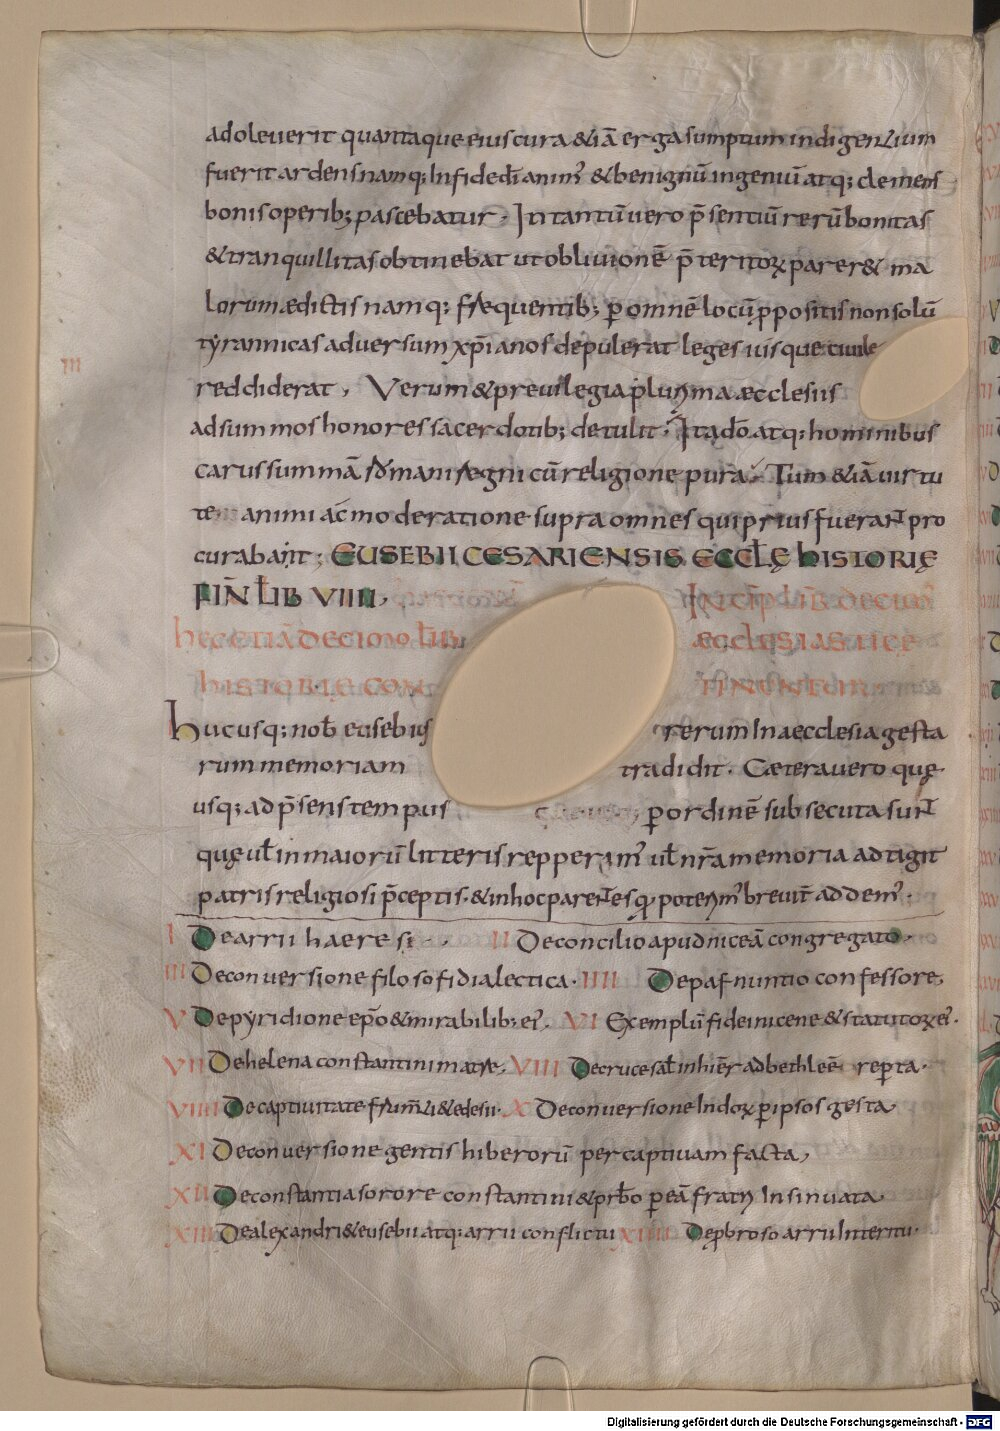 adoleverit quantaque eius cura &iā erga sumptum indigentium
fuerit ardens namq; In fide dī anim᾽ & benignū ingeniū atq; clemens
bonis operib; pascebatur. In tantū vero p̄sentiū rerū bonitas
& tranquillitas obtinebat ut oblivionē p̄teritoꝝ parer& ma
lorum ædictis namq; frequentib; ꝑ omnē locū ꝓpositis non solū
tyrannicas adversum xp̄ianos depulerat leges iusque civile
reddiderat, Verum & previlegia plurima æcclesiis
ad summos honores sacerdotib; detulit. Itaq; dō atq; hominibus
carus summā romani regni cū religione pura. Tum &iā virtu
te animi ac moderatione supra omnes qui prius fuerant pro
curabant; EUSEBII CESARIENSIS ECCLĘ HISTORIĘ
FIN̄ LIB VIIII,
INCIP̄ LIB̄ DECIM̄
HEC ETIĀ DECIMO LIB̄
ÆCCLESIASTICE
HISTORIĘ CON
TINENTUR
hucusq; nob̄ eusebius rerum In aecclesia gesta
rum memoriam tradidit. Cætera vero quę
usq; ad p̄sens tempus ꝑ ordinē subsecuta sunt
quę ul̄ in maiorū litteris repperim᾽ ul̄ nr̄a memoria adtigit
patris religiosi p̄ceptis. & in hoc parentes qͥ poterim᾽ brevit̄ addem᾽.
I De arrii haeresi. II De concilio apud niceā congregato.
III De conversione filosofi dialectica. IIII De pafnuntio confessore,
V De pyridione ep̄o & mirabilib; ei᾽. VI Exemplū fidei nicene & statutoꝝ ei᾽.
VII De helena constantini matre, VIII De cruce sal̄ in hiēr ad bethleē reperta.
VIIII De captivitate frum̄tii & edesii. X De conversione Indoꝝ ꝑ ipsos gesta
XI De conversione gentis hiberorū per captivam facta,
XII De constantia sorore constantini & prb̄o ꝑ eā fratri Insinuata.
XIII De alexandri & eusebii atq; arrii conflictu XIIII De ꝓbroso arrii Interitu.
III
Digitalisierung gefördert durch die Deutsche Forschungsgemeinschaft - DFG